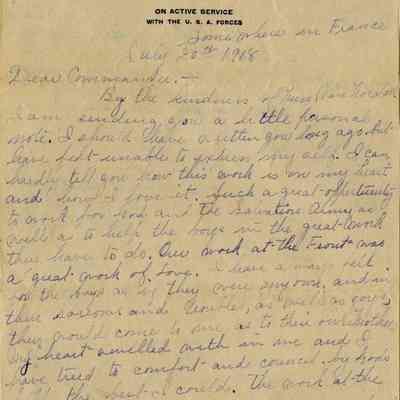 ON ACTIVE SERVICE
WITH THE U. S. A. FORCES
Somewhere in France
July 20th 1918
Dear Commander.—
By the kindness of Miss
I am sending you a little personal
note. I should have written you long ago but
have felt unable to express my self. I can
hardly tell you how this work is on my heart
and how I love it. Such a great opportunity
to work for God and the Salvation Army as
well as to help the boys in the great work
they have to do. Our work at the Front was
a great work of Love. I have always felt
for the boys as if they were my own, and in
their sorrows and troubles, as well as joys
they would come to me as to their own Mother
My heart swelled with in me and I
have tried to comfort and council by Gods
help the best I could. The work at the